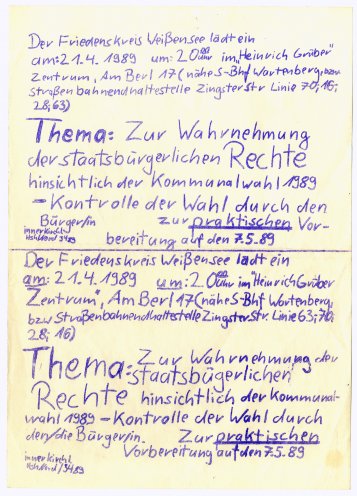 Der Friedenskreis Weißensee lädt ein
am: 21.4.1989 um: 20 00 Uhr im "Heinrich Grüber"
Zentrum, Am Berl 17 (nähe S-Bhf Wartenberg, bzw
straßenbahnendhaltestelle Zingster Str Linie 70; 16;
28; 63)
Thema: Zur Wahrnehmung
der staatsbürgerlichen Rechte
hinsichtlich der Kommunalwahl 1989
- Kontrolle der Wahl durch den
Bürger/in zur praktischen Vor-
innerkirchl.
bereitung auf den 7.5.89
Der Friedenskreis Weißensee lädt ein
am: 21.4.1989 um: 20 00 Uhr im "Heinrich Grüber
Zentrum", Am Berl 17 (nähe S-Bhf Wartenberg,
bzw Straßenbahnendhaltestelle Zingster Str. Linie 63; 70;
28; 16)
Thema: Zur Wahrnehmung der
staatsbügerlichen
Rechte hinsichtlich der Kommunal-
wahl 1989 - Kontrolle der Wahl durch
den/die Bürger/in. Zur praktischen
innerkirchl. Vorbereitung auf den 7.5.89